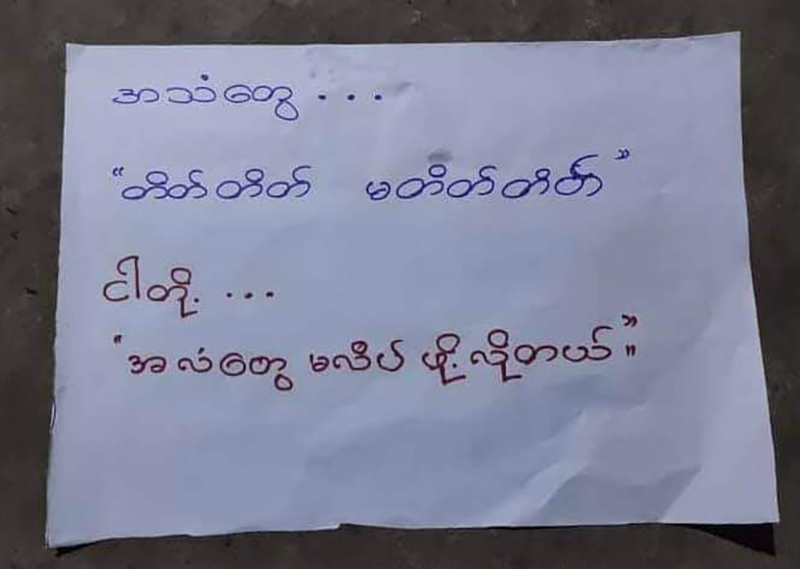 အသံတွေ ...
“တိတ်တိတ် မတိတ်တိတ်”
ငါတို့ ...
“အလံတွေ မလိပ် ဖို့ လိုတယ်”။